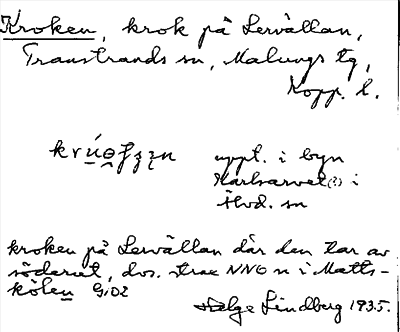 Kroken, krok på Lervällan,
Transtrands sn, Malungs tg,
Kopp. l.
uppt. i byn
Karlsarvet (?) i
Älvd. sn
kroken på Lervällan där den tar av
söderut, dvs. strax NNO n i Matts-
kölen GiD2
Helge Lindberg 1935.